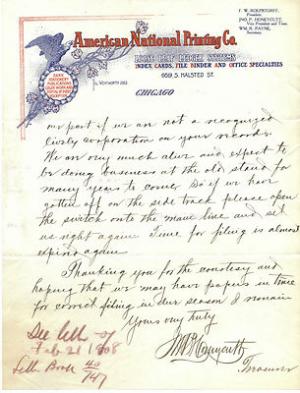 F. W. ROEPSTORFF,
President.
JNO. P. HONEYCUTT,
Vice President and Treas.
WM. R. PAYNE,
Secretary.
American National Printing Co.
LOOSE LEAF LEDGER SYSTEMS
INDEX CARDS, FILE BINDER AND OFFICE SPECIALTIES
659 S. HALSTED ST.
CHICAGO
our part if we are not a recognized
lively corporation on your records
We are very much alive and expect to
be doing business at the old stand for
many years to come. So if we have
gotten off on the side track please open
the switch onto the main line and set
us right again. Time for filing is almost
expiring again
Thanking you for the courtesy and
hoping that we may have papers in time
for correct filing in due season I remain
Yours very truly
Jno P Honeycutt
Treasurer
See Letter of
Feb. 21 1908
Letter Book 40
147